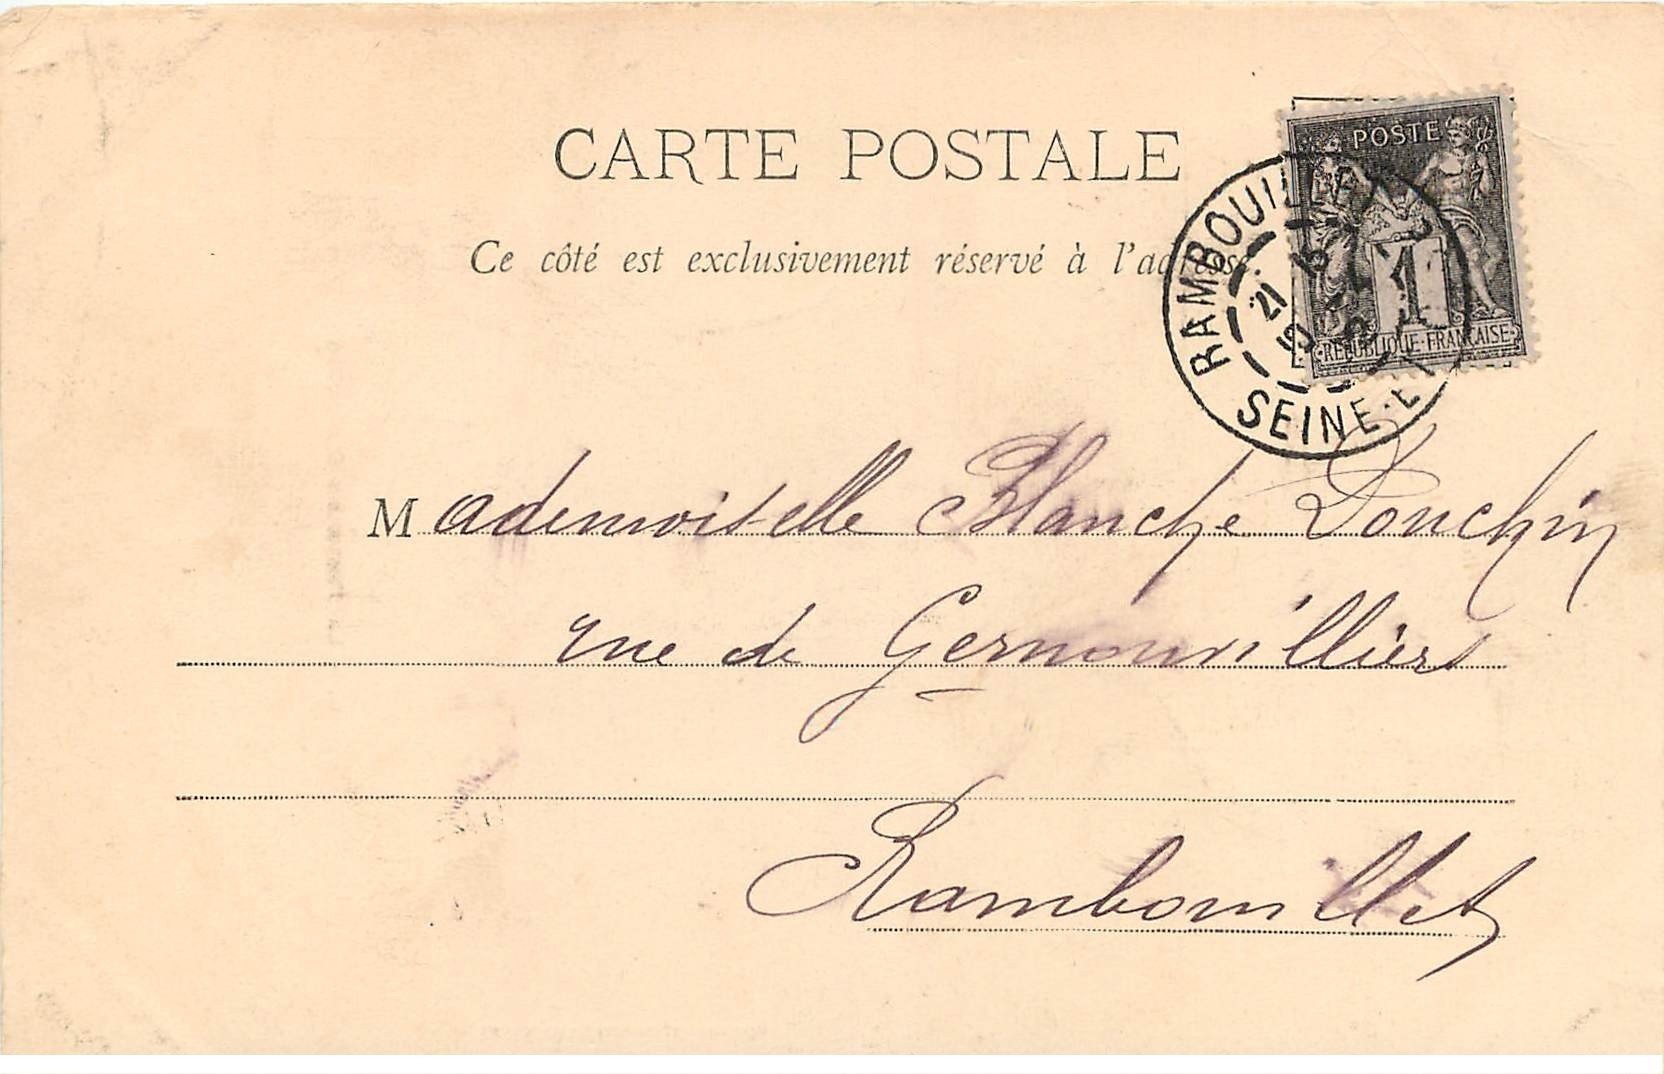 CARTE POSTALE
Ce côté est exclusivement réservé à l'adresse.
POSTE
1
REPUBLIQUE FRANCAISE
RAMBOUILLET
21
SEINE-ET
Mademoiselle Blanche Douchin
rue de Gernonvilliers
Rambouillet